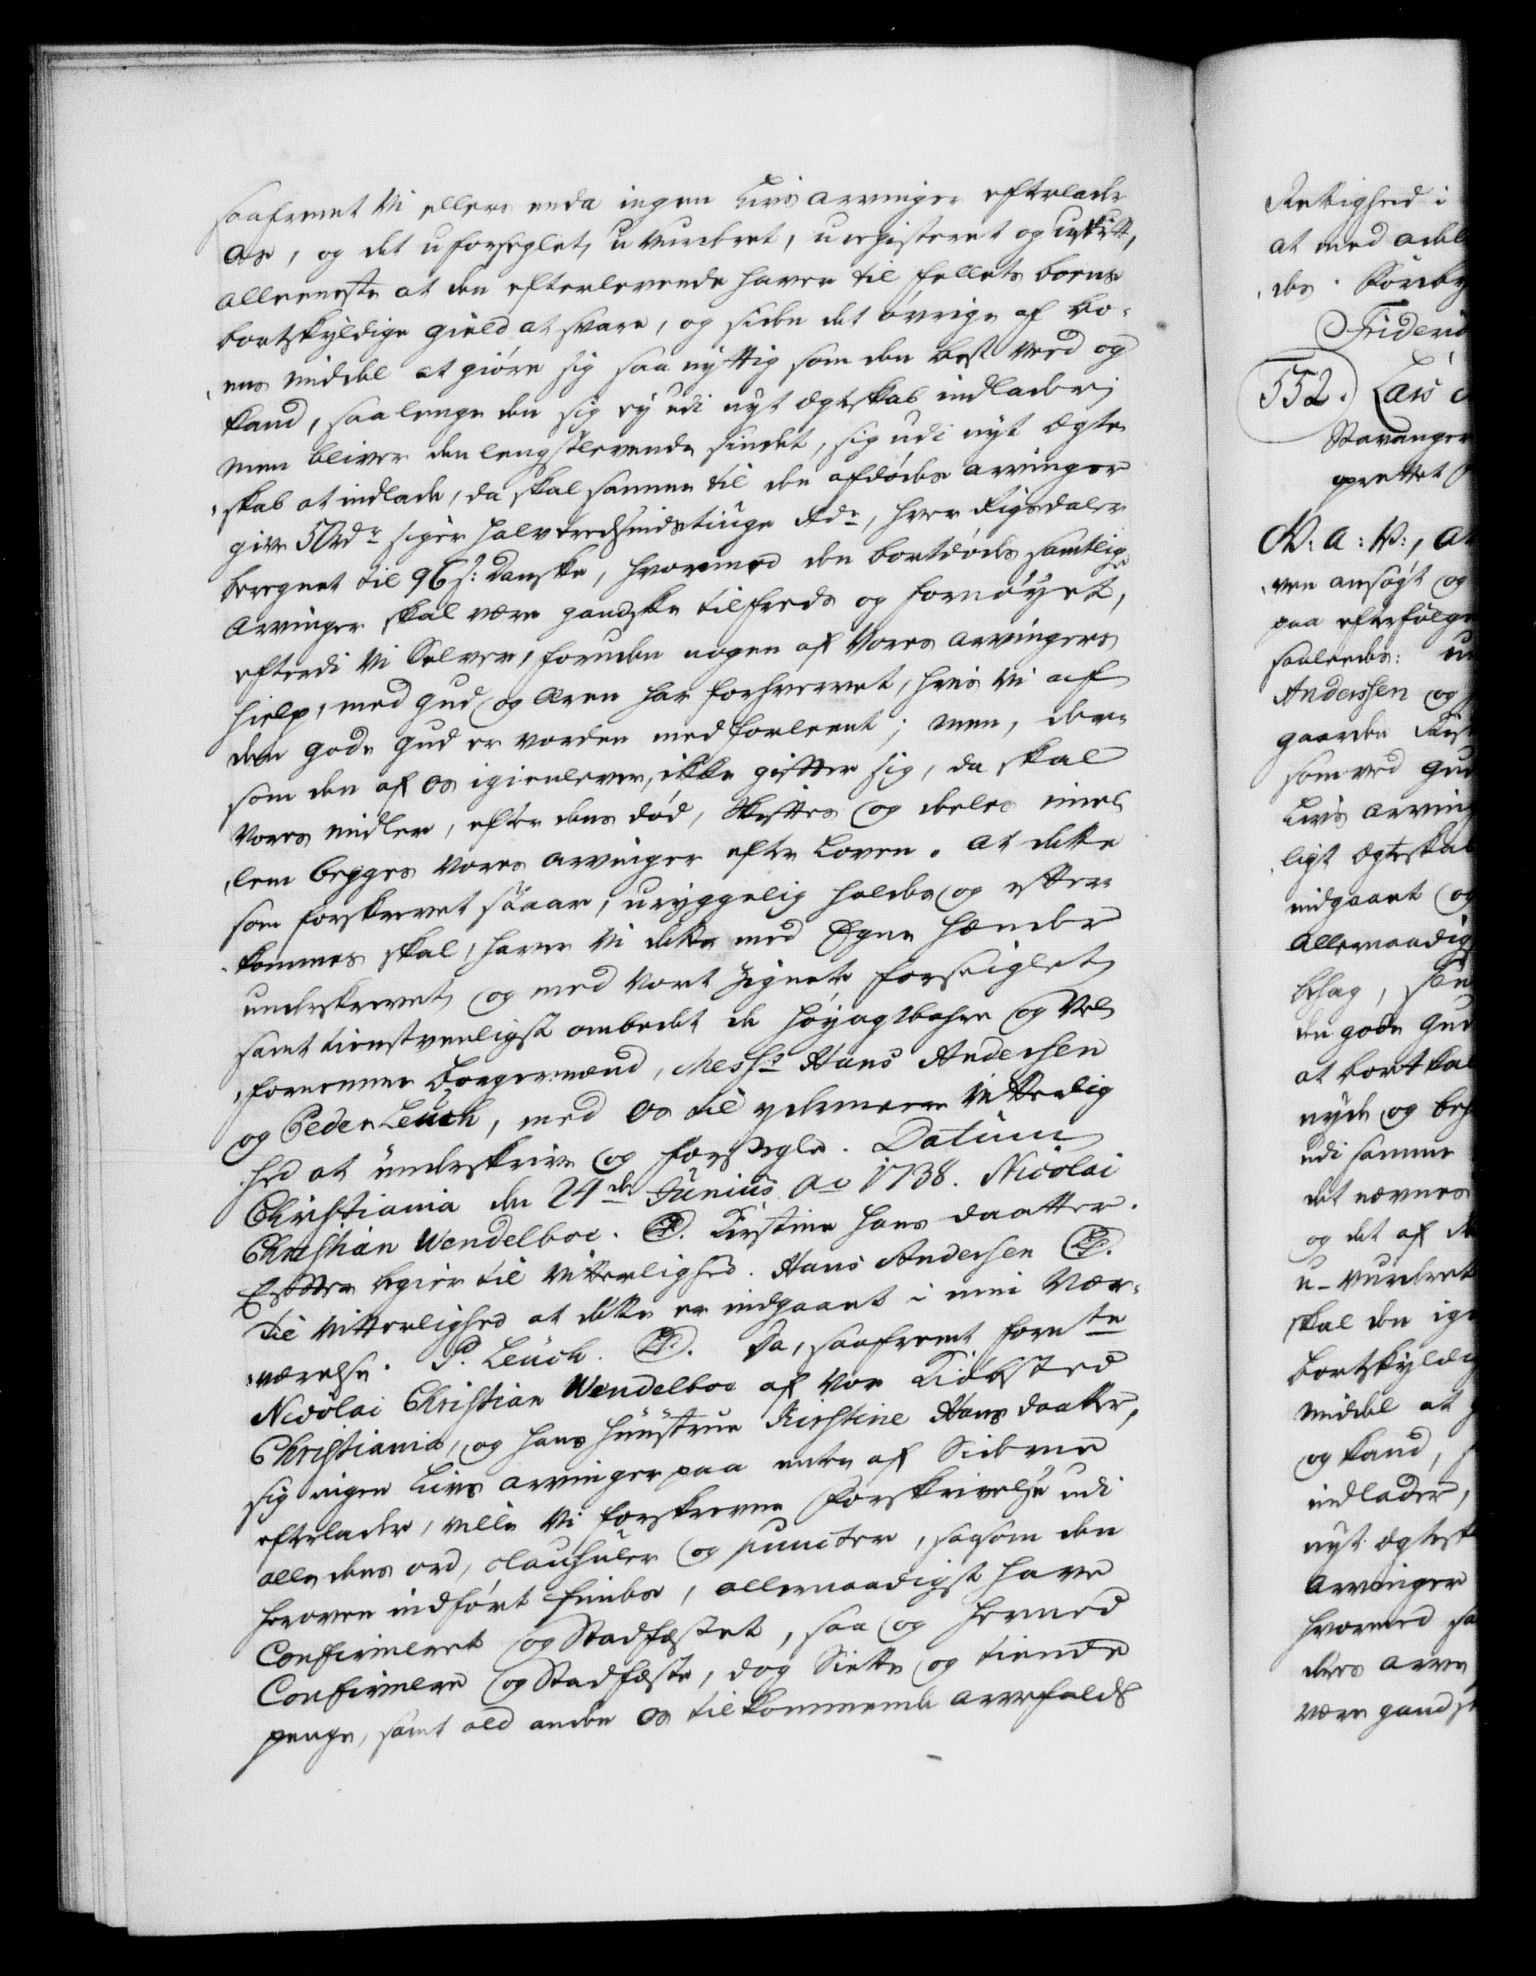 saafremt Vi ellers enda ingen Livs arvinger efterlade
os, og det uforseglet, uvurderet, uregisteret og uskift,
alleeneste at den efterlevende haver til fellets boens
bortskyldige gield at svare, og siden det øvrige af bo-
ens middel at giøre sig saa nyttig som den best veed og
kand, saalenge den sig ey udi nyt ægteskab indlader;
men bliver den lengstlevende sindet, sig udi nyt ægte
skab at indlade, da skal samme til den afdødes arvinger
give 50 Rdr siger halvtredsindstiuge Rdr, hver Rigsdaler
beregnet til 96 s: danske, hvormed den bortdødes samtlige
arvinger skal være gandske tilfreds og fornøyet,
efterdi Vi Selver, foruden nogen af Vores arvingers
hielp, med gud og æren har forhvervet, hvis Vi af
den gode gud er vorden med forleent; men, der-
som den af os igienlever, ikke gifter sig, da skal
Vores midler, efter dens død, skiftes og deeles imel-
lem begges vores arvinger efter Loven. At dette
som forskrevet staaar, uryggelig holdes og efter-
kommes skal, haver Vi dette med Egne hænder
underskrevet og med vort Zignete forseiglet
samt tienstvenligst ombedet de høyagtbahre og Vel-
fornemme borgermænd, Messrs Hans Andersen
og Peder Leuch, med os til ydermeere Vitterlig
hed at underskrive og forsegle. Datum
Christiania den 24de Junius Ao 1738. Nicolai
Christian Wendelboe. LS. Kirstine Hans daatter.
Efter begier til Vitterlighed. Hans Andersen LS.
Til Vitterlighed at dette er indgaaet i min Nær-
værelse. P. Leuch. LS. Da, saafremt fornte
Nicolai Christian Wendelboe af vor Kiøbsted
Christiania, og hans huustrue Kirstine Hans daatter,
sig ingen Livs arvinger paa enten af Siderne
efterlader, ville Vi forskrevne Forskrivelse udi
alle dens ord, clausuler og puncter, saasom den
heroven indført findes, allernaadigst have
Confirmeret og Stadfæstet, saa og hermed
Confirmere og Stadfæste, dog Siette og tiende
penge, samt ald anden os tilkommende arvefalds
Rettighed i
at med adel
des. Kiøbe
Friderie
552. Lars
Stavanger
oprettet
W: A: W:, At
ven ansøgt og
paa efterfølge
saaleedes:
Anderssen og
gaarden
som ved Gud
Livs arving
ligt ægteskab
indgaaet og
allernaadigst
behag,
den gode Gud
at bortkal
nyde og beh
udi samme
det nævnes
og det af
u-vurderet
skal den ige
bortskyldig
middel at
og kand,
indlader,
nyt ægtesk
arvinger
hvormed sa
deres arv
være gandsk